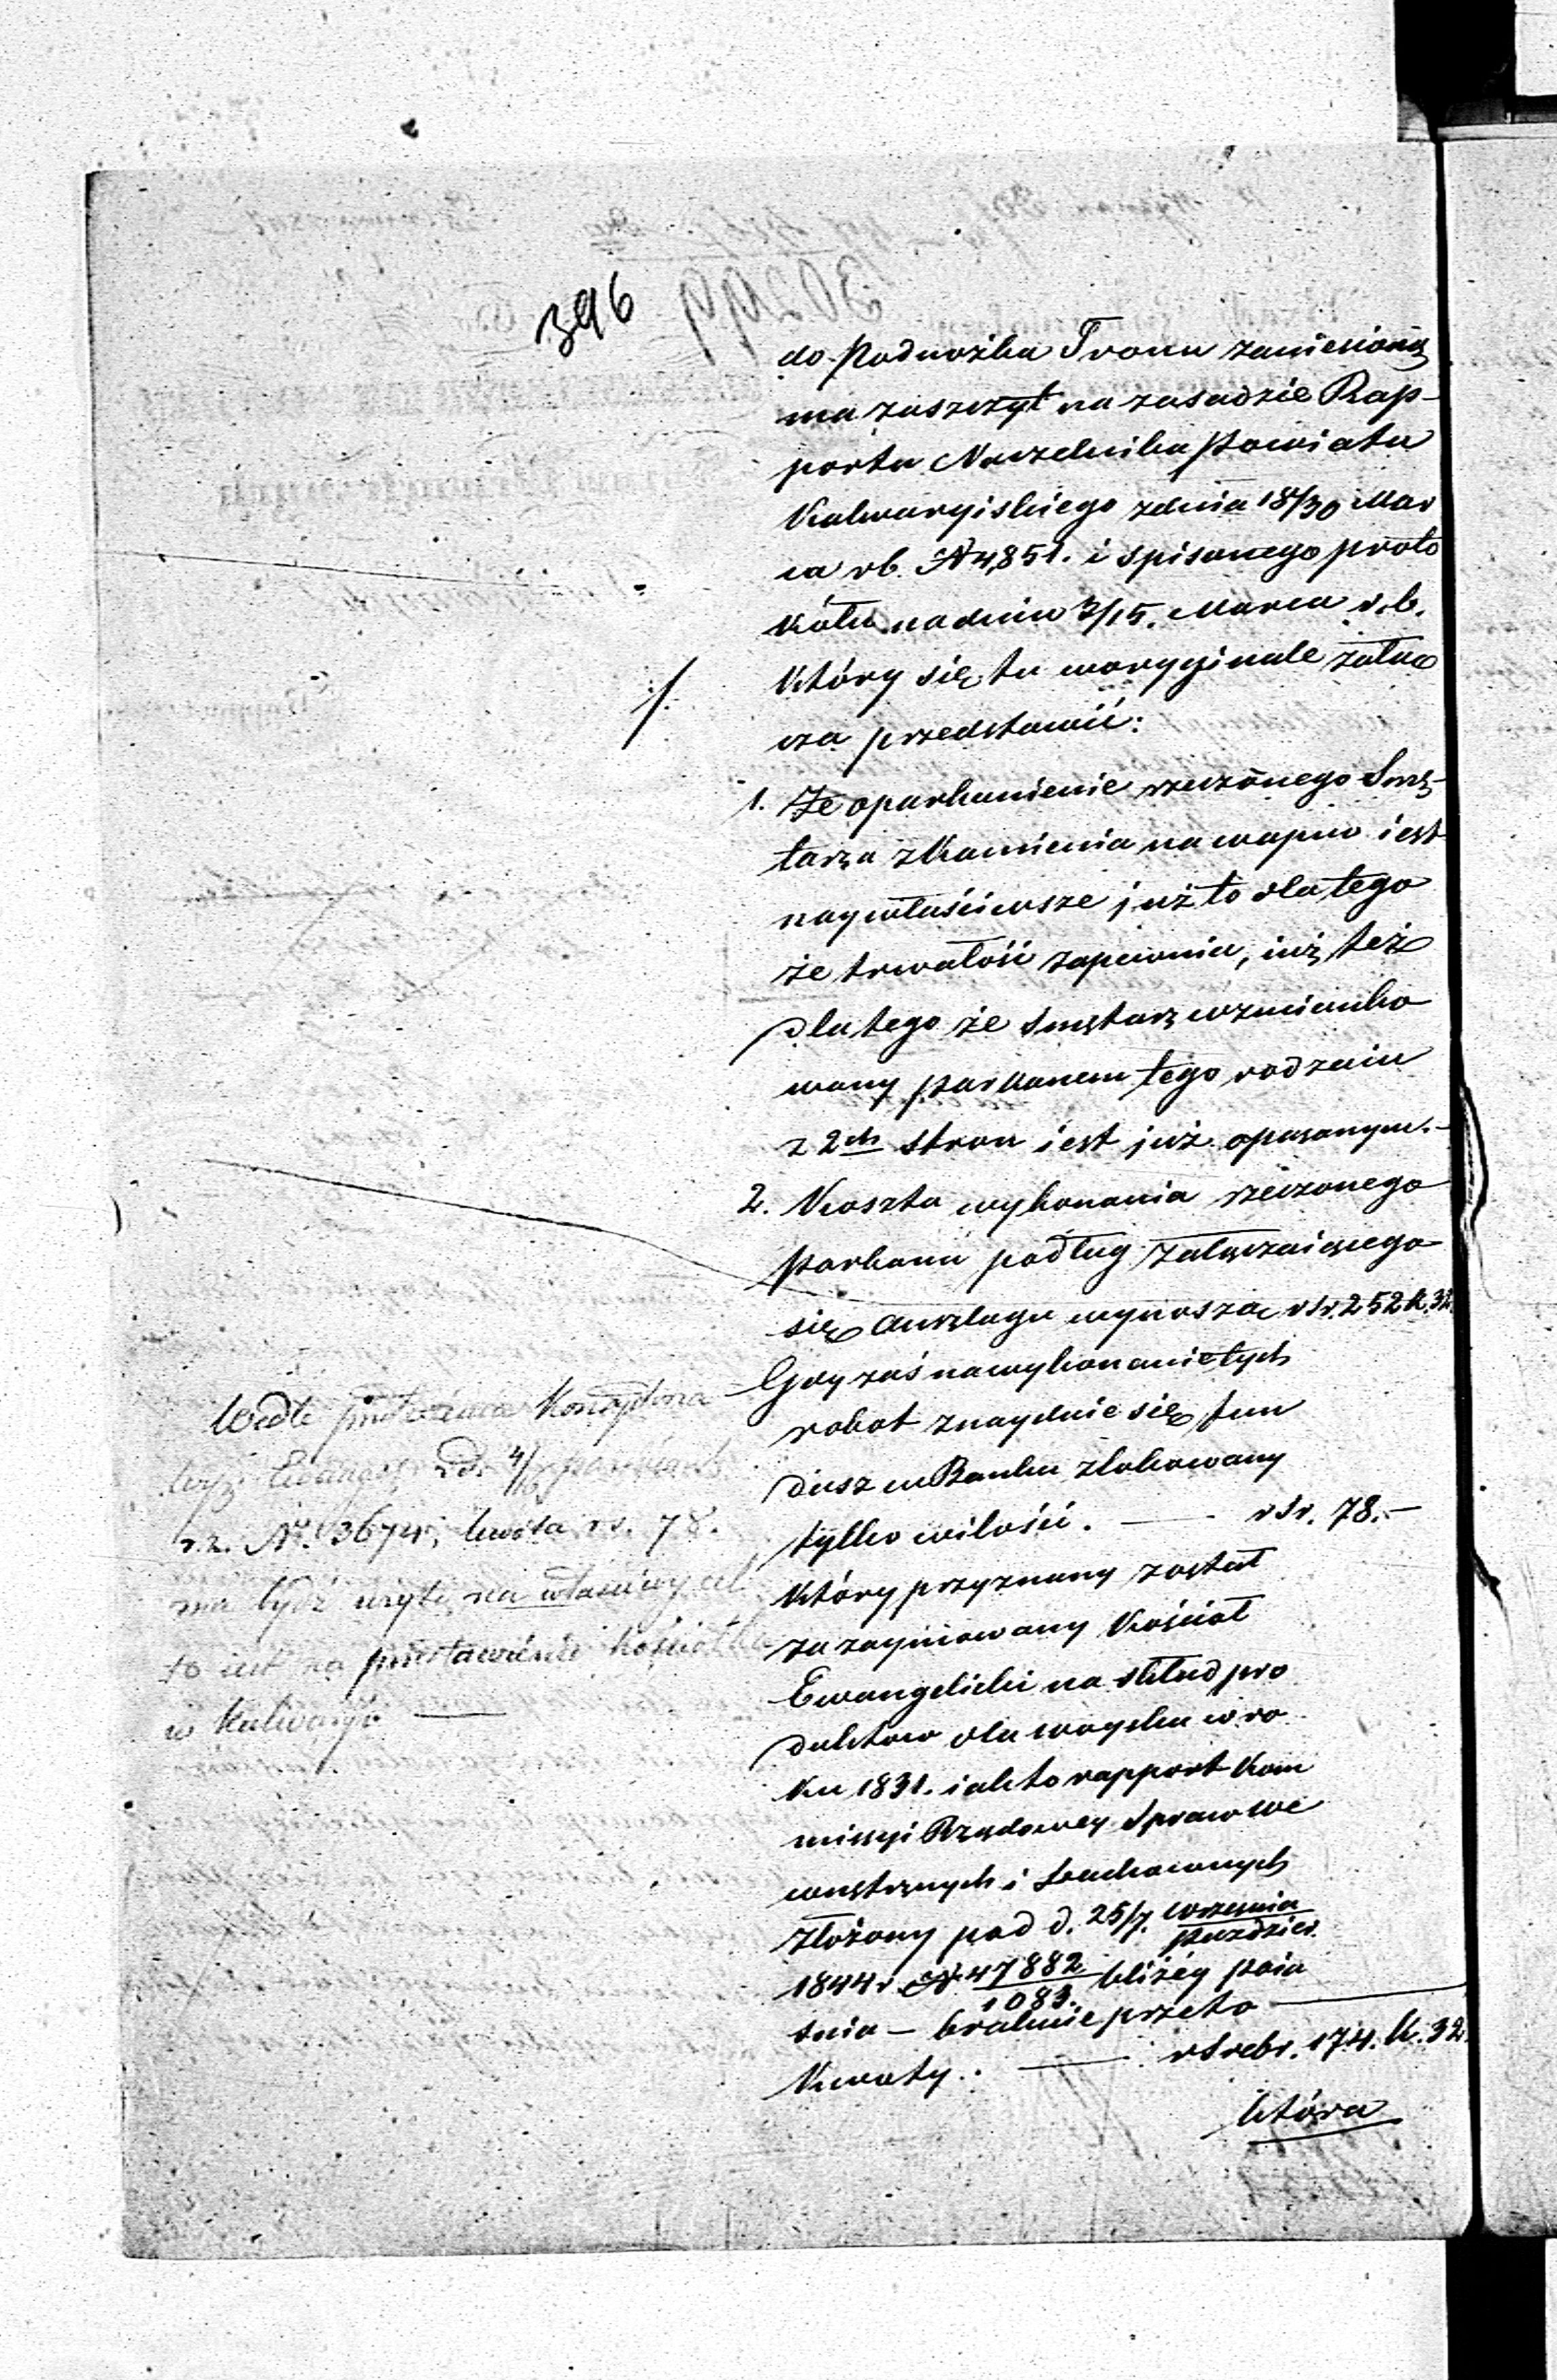 396
do Podnożka Tronu zaniesioną
ma zaszczyt na zasadzie Rap-
portu Naczelnika Powiatu
Kalwaryiskiego zdnia 18/30 Mar
ca rb. N 4,851. i spisanego proto
kółu na dniu 3/15. Marca r.b.
który się tu woryginale załą
cza przedstawić:
1. Że oparkanienie rzeczonego Smę-
tarza z Kamienia na wapno iest
naywłaściwsze już to dla tego
że trwałość zapewnia, iuż też
dla tego że Smętarz wzmianko
wany parkanem tego rodzaiu
z 2ch stron iest już opasanym.-
2. Koszta wykonania rzeczonego
Parkanu podług załączaiącego
się Anszlagu wynoszą rsr. 252 k. 32.
Gdy zaś na wykonanie tych
robot znayduie się fun
dusz w Banku zlokowany
tylko wilości. — rsr. 78.-
który przyznany został
za zaymowany Kościoł
Ewangelicki na skład pro
duktow dla woyska w ro
ku 1831. iak to rapport Kom
missyi Rządowey Spraw We
wnętrznych i Duchownych
złożony pod d. 25/7. Września/Paździer.
1844 r. N 47882/1083. bliżéy poia
śnia — brakuie przeto —
Kwoty.. — rsrebr. 174. k. 32.
która
./.
Wedle Konsystorza
Ewang. z d. 4/16
r.z. Nr. 3674, kwota rs. 78.
ma bydź użytą na właściwy cel
to iest na postawienie kościoła
w Kalwaryi —